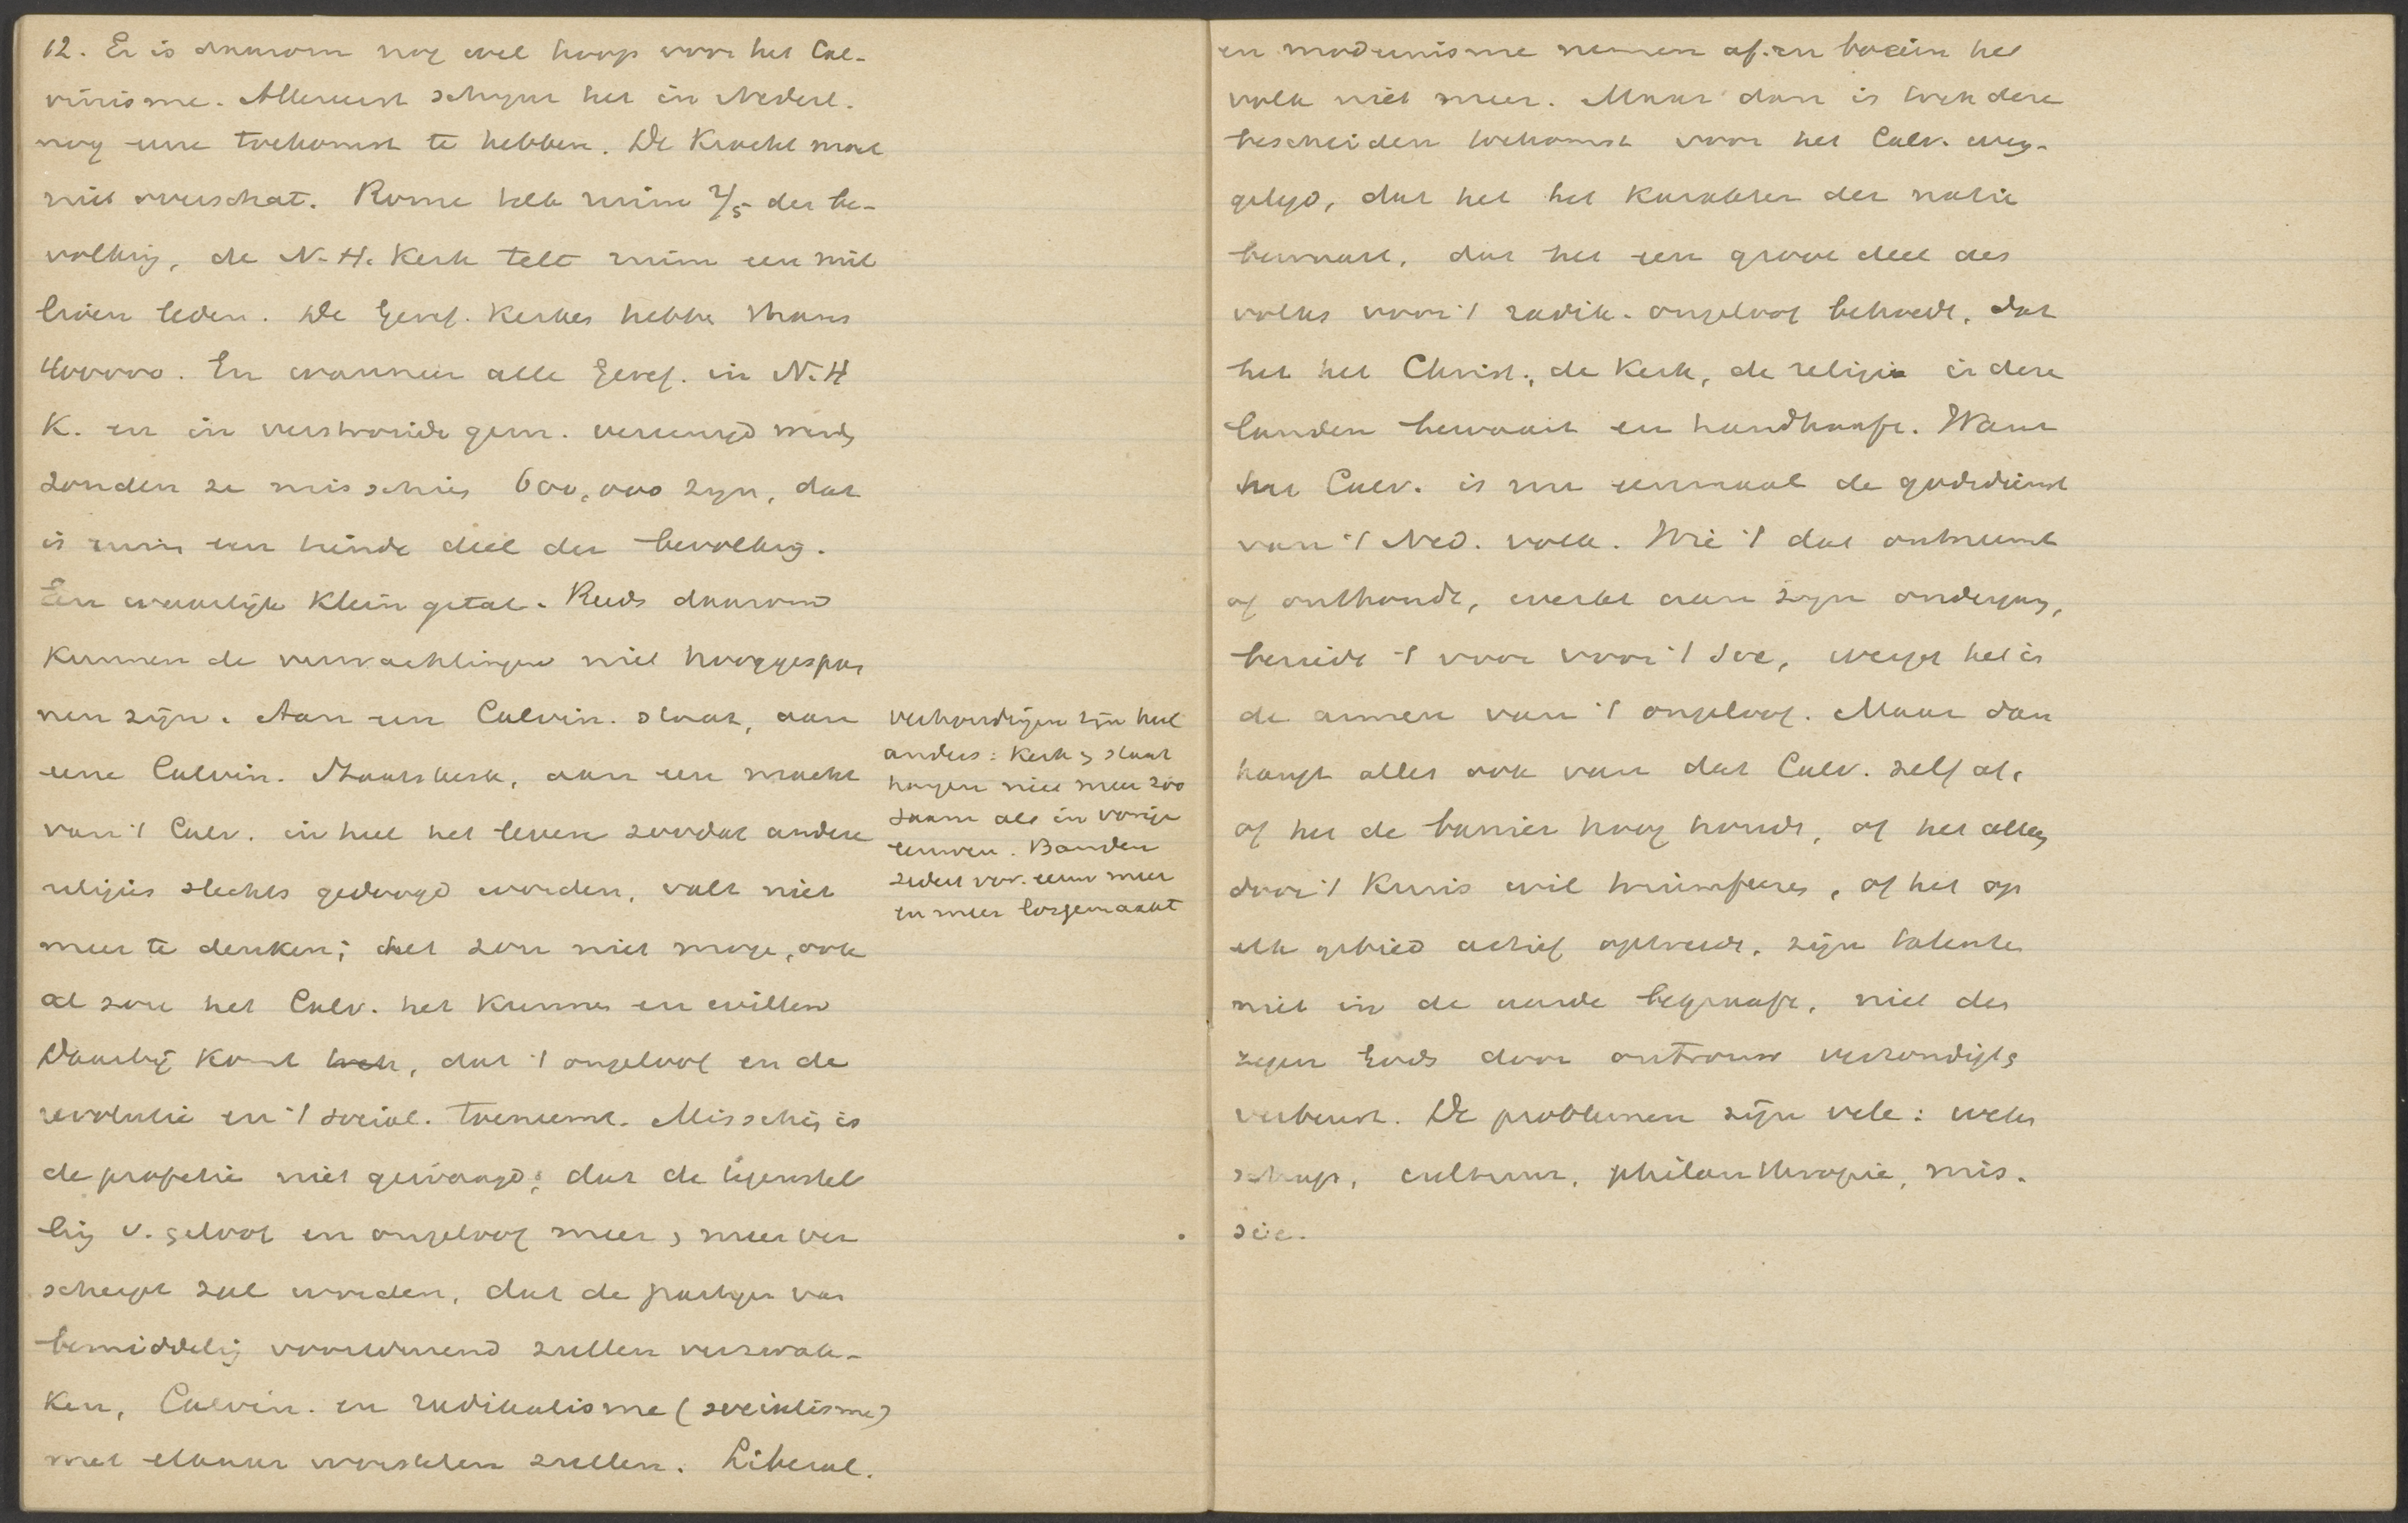 12. Er is daarom nog wel hoop voor het Cal-
vinisme. Allereerst schynt het in Nederl.
nog eene toekomst te hebben. De Kracht mag
niet overschat. Rome telt ruim 2/5 der be-
volking, de N.H. Kerk telt ruim een mil
lioen leden. De Geref. Kerken hebben thans
400000. En wanneer alle Geref. in N.H
K. en in verstrooide gem. vereenigd werden
zouden ze misschien 600,000 zyn, dat
is ruim een tiende deel der bevolking.
Een waarlijk klein getal. Reeds daarom
kunnen de verwachtingen niet hooggespan
nen zijn. Aan een Calvin. staat, aan
eene Calvin. Staatskerk, aan een macht
van 't Calv. in heel het leven zoodat andere
religies slechts gedoogd worden, valt niet
meer te denken; het zou niet mogen, ook
al zou het Calv. het kunnen en willen
verhoudingen zijn heel
anders: Kerk en staat
hangen niet meer zoo
saam als in vorige
eeuwen. Banden
zeden vor. eeuw meer
en meer losgemaakt
Daarbij komt toch, dat 't ongeloof en de
revolutie en 't social. toeneemt. Misschien is
de profetie niet gewaagd: dat de tegenstel
ling v. geloof en ongeloof meer en meer ver
scherpt zal worden, dat de partyen van
bemiddeling voortdurend zullen verzwak-
ken, Calvin. en radikalisme (socialisme)
met elkaar worstelen zullen. Liberal.
en modernisme nemen af. en boeien het
volk niet meer. Maar dan is toch deze
bescheiden toekomst voor het Calv. weg-
gelegd, dat het het karakter der natie
bewaart, dat het een groot deel des
volks voor 't radik. ongeloof behoedt, dat
het het Christ., de Kerk, de religie in deze
landen bewaart en handhaaft. Want
het Calv. is nu eenmaal de godsdienst
van 't Ned. volk. Wie 't dat ontneemt
of onthoudt, werkt aan zyn ondergang,
bereidt 't voor voor 't Soc, werpt het in
de armen van 't ongeloof. Maar dan
hangt alles ook van dat Calv. zelf af,
of het de banier hoog houdt, of het alleen
door 't Kruis wil triumfeeren, of het op
elk gebied actief optreedt, zijn talenten
niet in de aarde begraaft, niet den
zegen Gods door ontrouw verzondigt en
verbeurt. De problemen zijn vele: weten
schap, cultuur, philanthropie, mis-
sie.